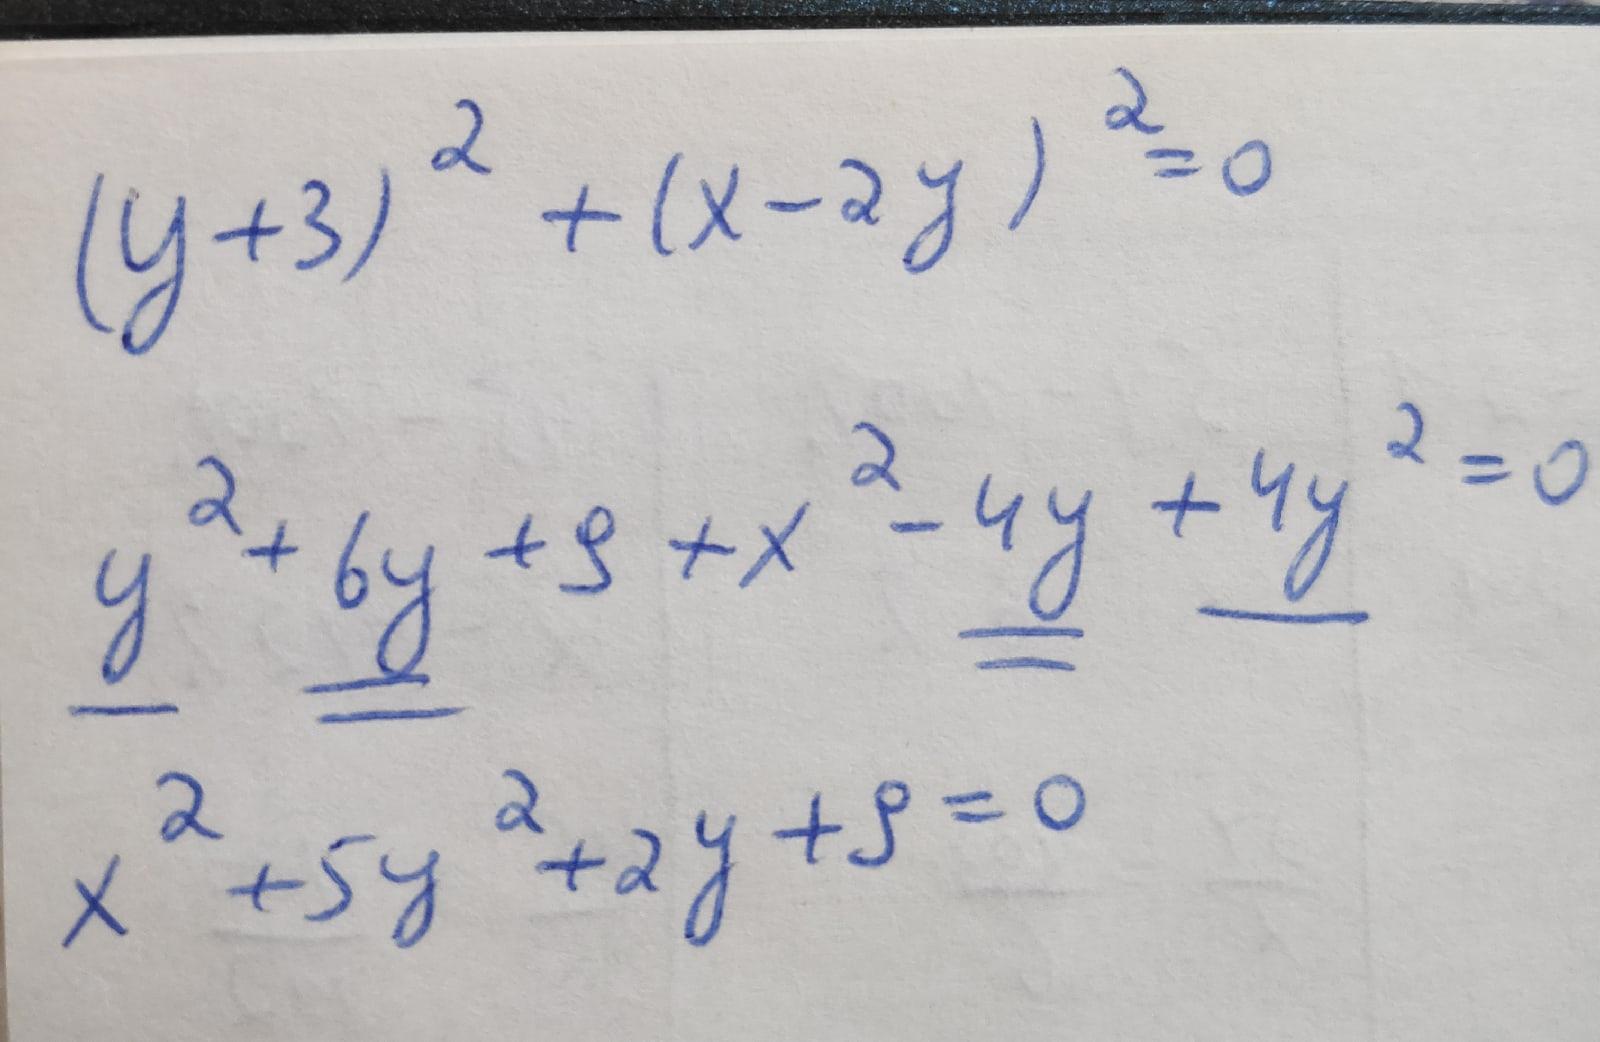 (y+3)² + (x-2y)² = 0
y² + 6y + 9 + x² - 4y + 4y² = 0
x² + 5y² + 2y + 9 = 0